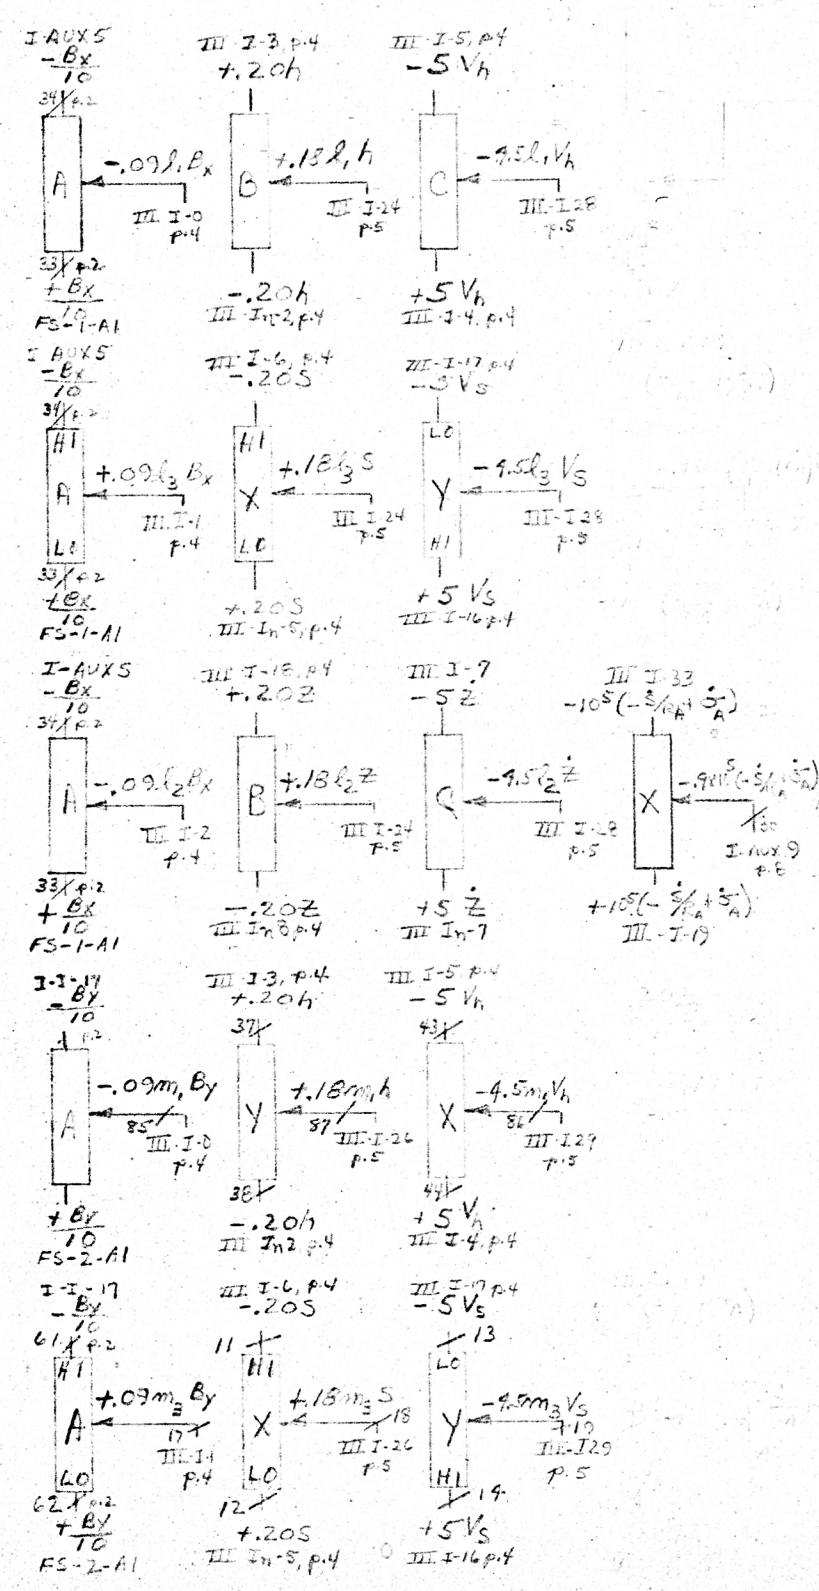 I-AUX5
-Bx
10
34 p.2
A
-.09l₁Bx
III I-0
p.4
33 p.2
+Bx
10
FS-1-A1
III I-3, p.4
+.20h
B
+.18l₁h
III I-24
p.5
-.20h
III In-2, p.4
III-I-5, p4
-5Vh
C
-4.5l₁Vh
III-I28
p.5
+5Vh
III I-4, p.4
I AUX5
-Bx
10
34 p.2
HI
A
LO
+.09l₃Bx
III.I-1
p.4
33 p.2
+Bx
10
FS-1-A1
III I-6, p.4
-.20S
HI
X
LO
+.18l₃S
III I.24
p.5
+.20S
III-In-5, p.4
III-I-17, p.4
-5Vs
LO
Y
HI
-4.5l₃Vs
III-I28
p.5
+5Vs
III I-16 p.4
I-AUX5
-Bx
10
34 p.2
A
-.09l₂Bx
III I-2
p.4
33 p.2
+Bx
10
FS-1-A1
III I-18, p4
+.20Z
B
+.18l₂Z
III I-24
p.5
-.20Z
III In8 p.4
III I-7
-5Ż
C
-4.5l₂Ż
III I-28
p.5
+5Ż
III In-7
III I-33
-10⁵(-Ṡ/RA+
X
I-AUX9
p.8
+10⁵(-Ṡ/RA+
III-I-19
I-I-17
-By
10
p.2
A
-.09m₁By
85
III-I-0
p.4
+By
10
FS-2-A1
III I-3, p.4
+.20h
37
Y
+.18m₁h
87
III-I-26
p.5
38
-.20h
III In2, p.4
III I-5 p.4
-5Vh
43
X
-4.5m₁Vh
86
III-I29
p.5
44
+5Vh
III I-4, p.4
I-I-17
-By
10
61 p.2
HI
A
LO
+.09m₃By
17
III-I-1
p.4
62 p.2
+By
10
FS-2-A1
III I-6, p.4
-.20S
11
HI
X
LO
+.18m₃S
18
III I-26
p.5
12
+.20S
III In-5, p.4
III-I-17 p.4
-5Vs
13
LO
Y
HI
-4.5m₃Vs
19
III-I29
p.5
14
+5Vs
III I-16 p.4